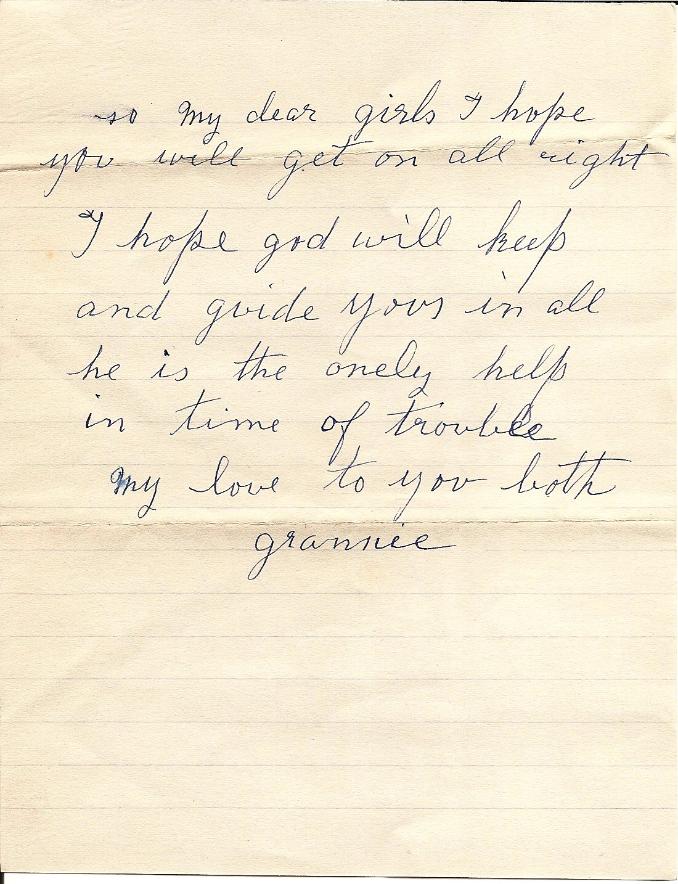 so my dear girls I hope
you will get on all right
I hope god will keep
and guide yous in all
he is the onely help
in time of trouble
my love to you both
grannie